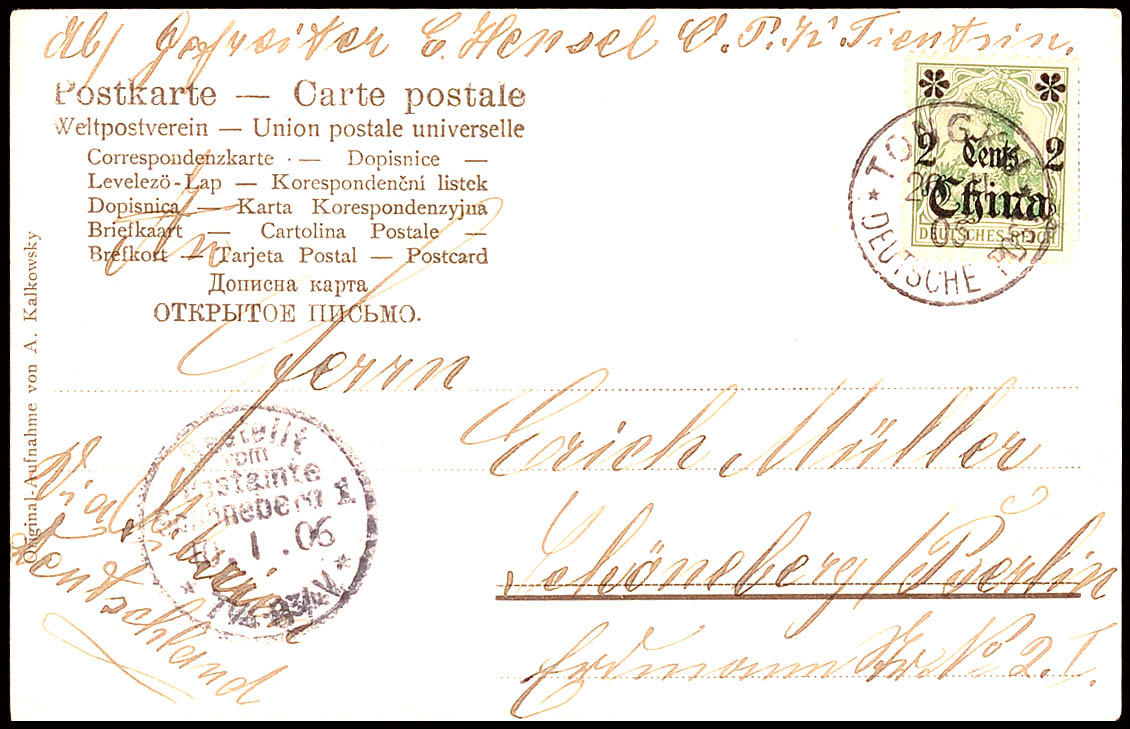 Abs Gefreiter E. Hensel O.P.K Tientsin.
Postkarte — Carte postale
Weltpostverein — Union postale universelle
Correspondenzkarte · — Dopisnice —
Levelező-Lap — Korespondenční listek
Dopisnica — Karta Korespondenzyjna
Briefkaart — Cartolina Postale —
Brefkort — Tarjeta Postal — Postcard
Дописна карта
ОТКРЫТОЕ ПИСЬМО.
2 Cents 2
China
DEUTSCHES REICH
TONGKU
05
DEUTSCHE POST
An
Herrn
Erich Müller
Schöneberg/Berlin
Erdmann Str. No 2. I.
Original-Aufnahme von A. Kalkowsky
Via Sibirien
Deutschland
Bestellt
vom
Postamte
Schöneberg 1
10. 1. 06
V.